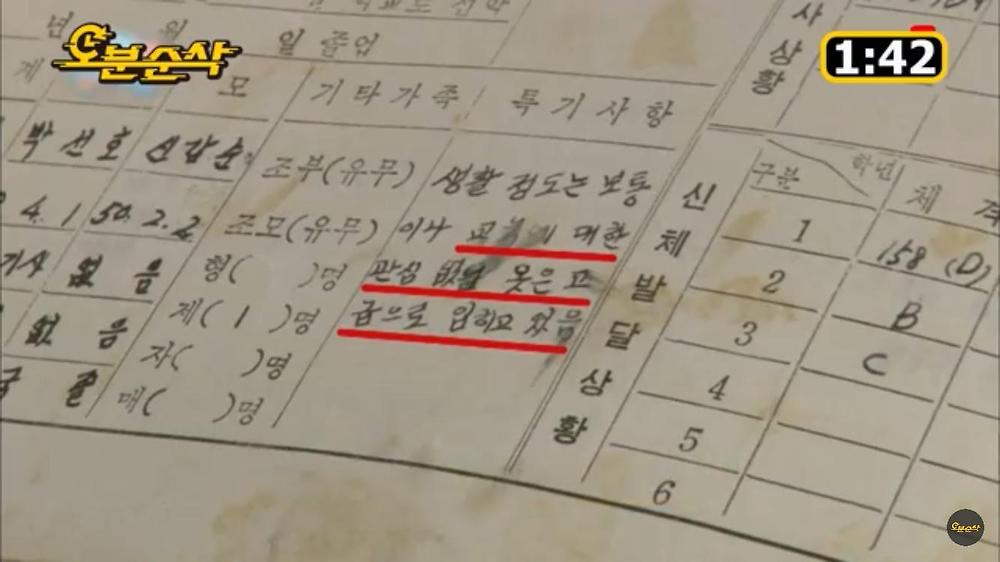 오분순삭
1:42
년 월 일 졸업
사상황
계 모 기타가족 특기사항
박선호 신갑순
4.1 50.2.2
없음
없음
조부(유무)
조모(유무)
형( )명
제( 1 )명
자( )명
매( )명
생활 정도는 보통
이나 교육에 대한
관심 없남 옷은 고
급으로 입히고 있음
신체발달상황
구분 학년 체격
1 158 (D)
2 B
3 C
4
5
6
오분순삭